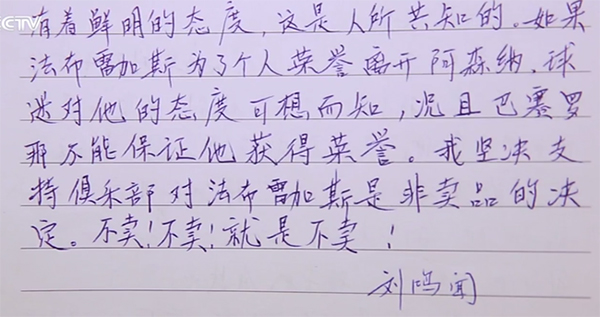 CCTV
有着鲜明的态度,这是人所共知的。如果
法布雷加斯为了个人荣誉离开阿森纳,球
迷对他的态度可想而知,况且巴塞罗
那不能保证他获得荣誉。我坚决支
持俱乐部对法布雷加斯是非卖品的决
定。不卖!不卖!就是不卖!
刘鸣闻